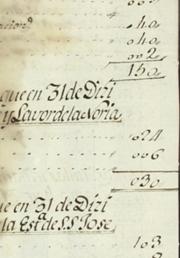 040
040
002
150
que en 31 de Dizi
y Lavor de la Noria
024
006
030
ue en 31 de Dizi
la Esta de S.S. Jose
103